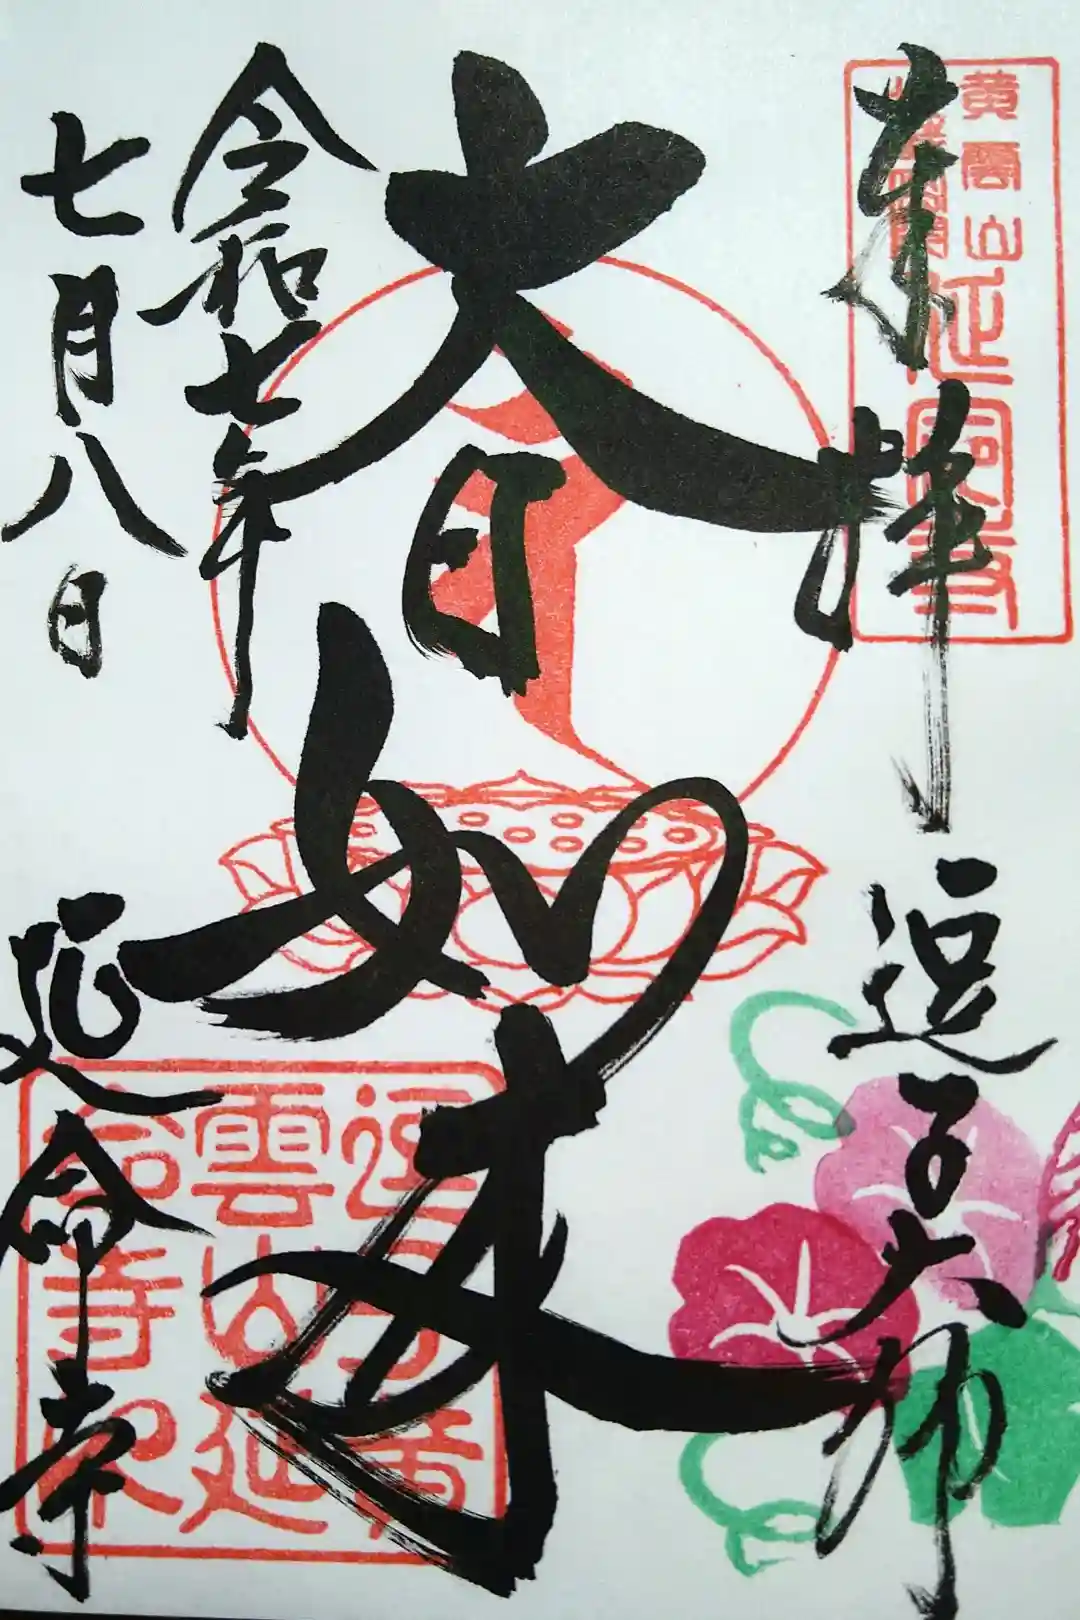 奉拝 逗子大師
大日如来
令和七年
七月八日
延命寺
黄雲山
逗子黄
雲山延
命寺印